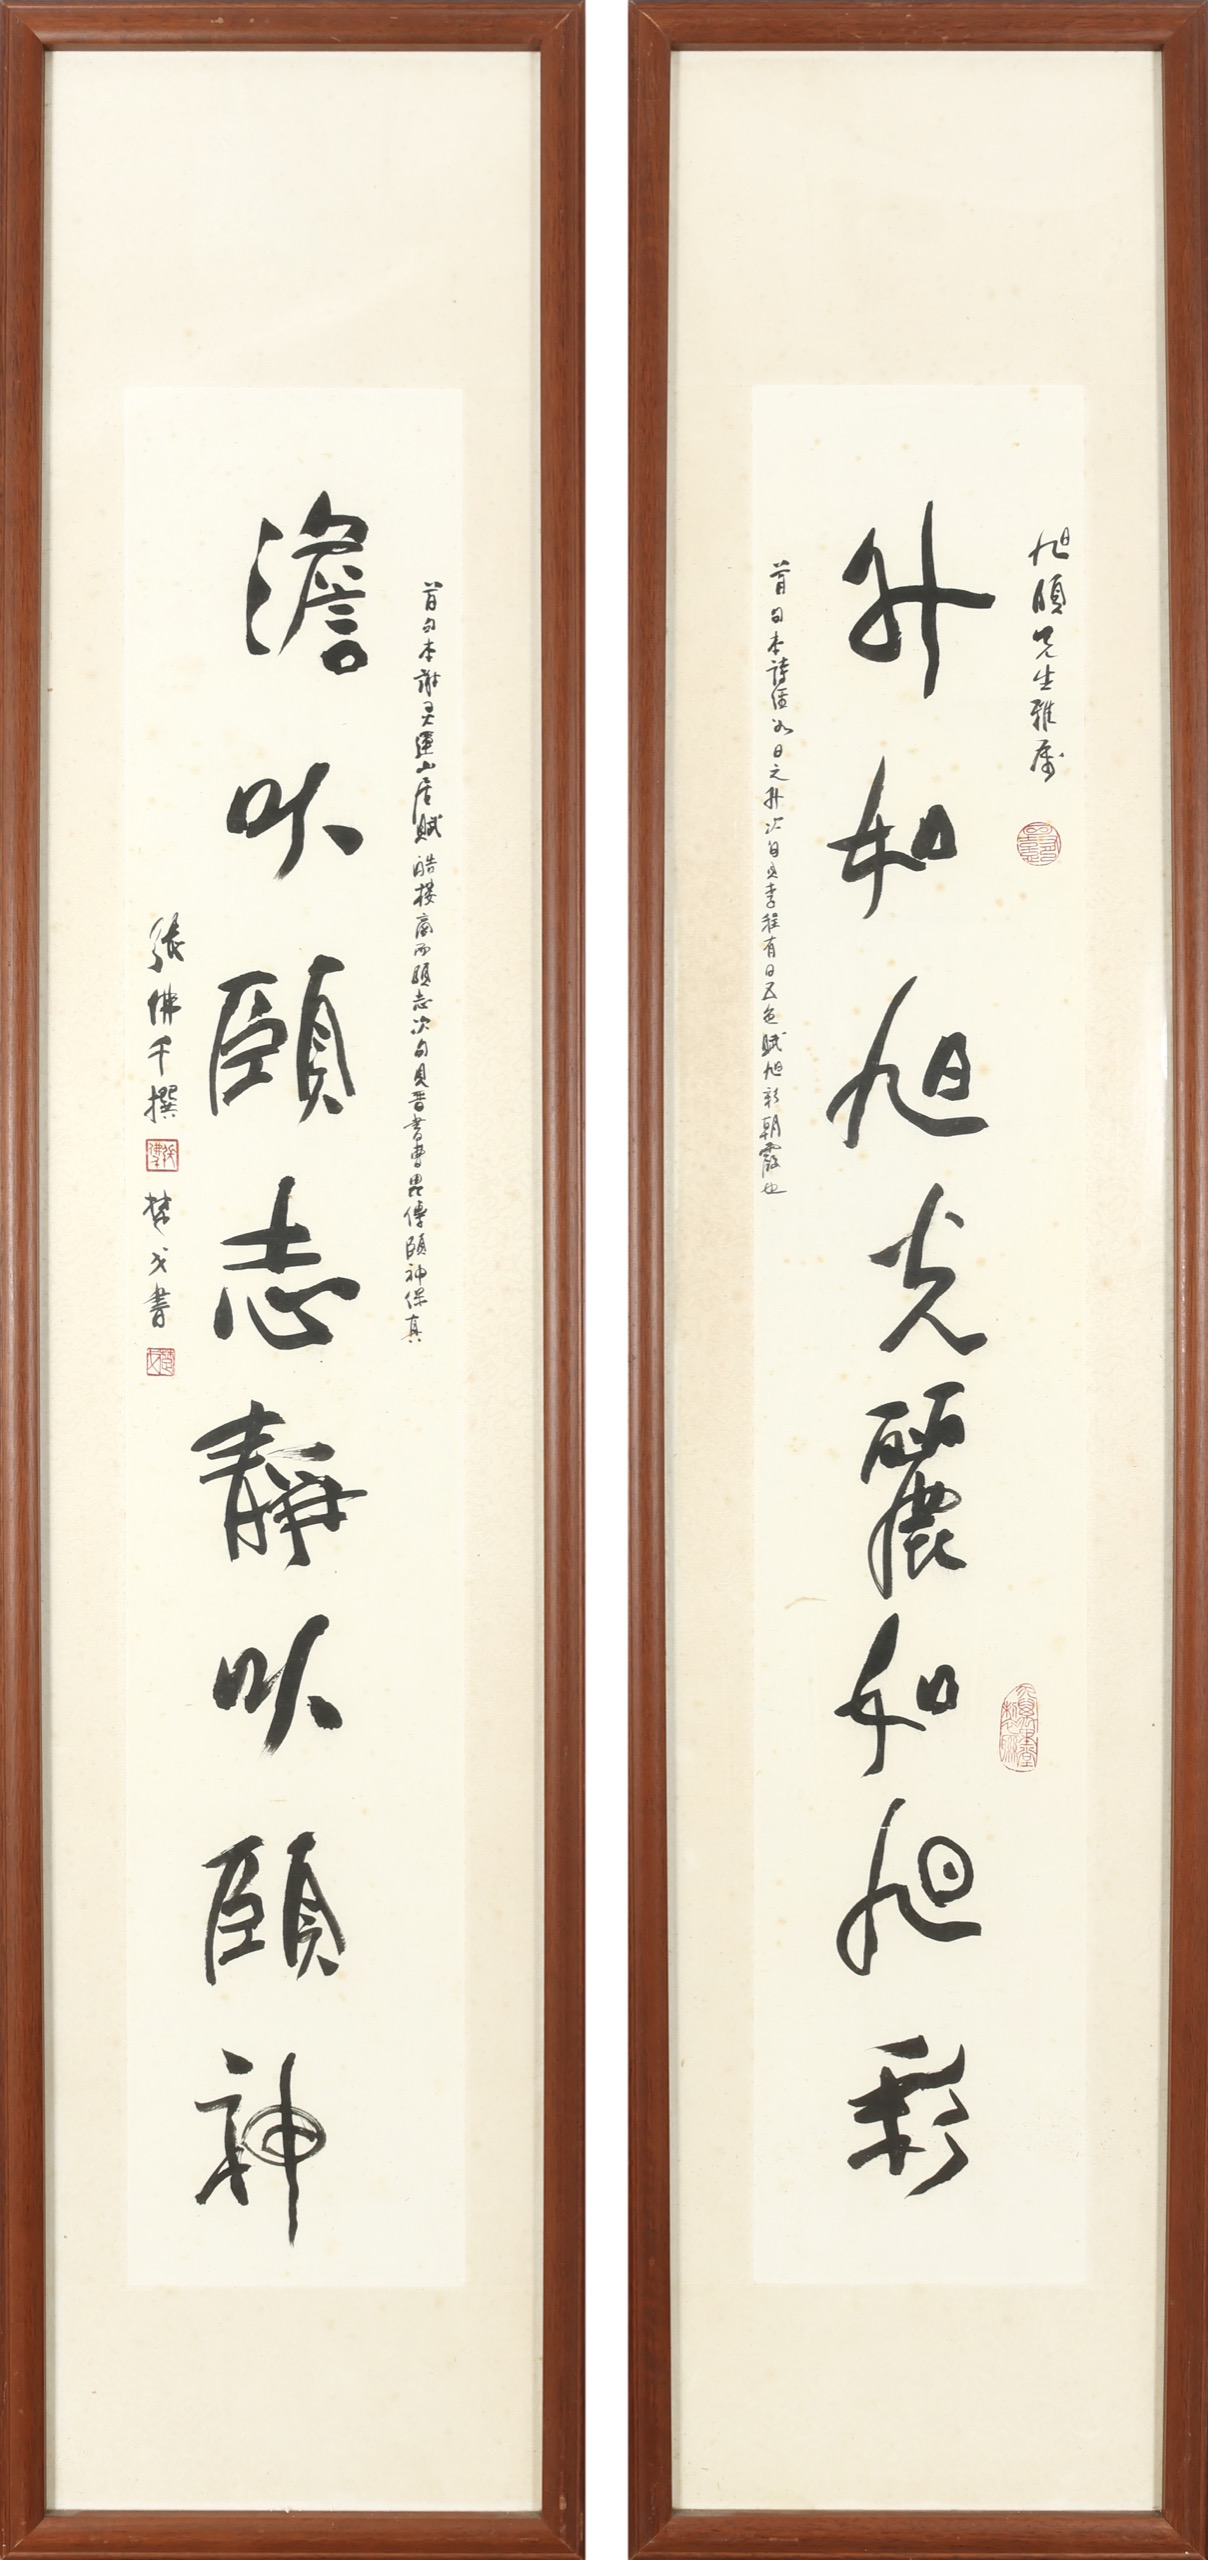 旭頤先生雅屬
升如旭光麗如旭彩
首句本詩經如日之升次句見李程有日五色賦旭彩朝霞也
首句本謝灵運山居賦 皓棲商而頤志次句見晋書曹毘傳頤神保真
澹以頤志靜以頤神
張佛千撰
楚戈書